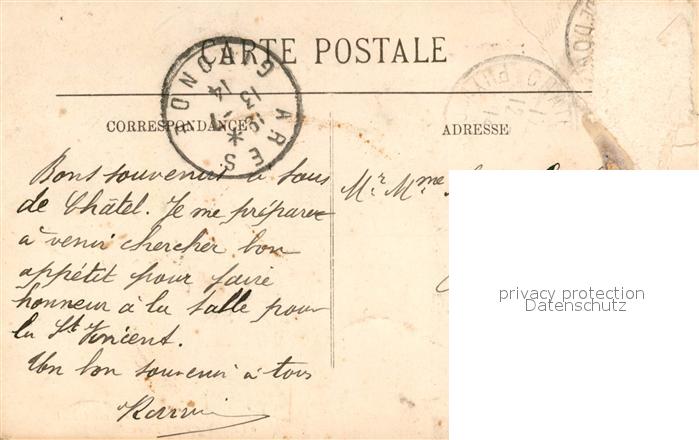 CARTE POSTALE
CORRESPONDANCE
ADRESSE
Bons souvenirs à tous
de Châtel. Je me prépare
à venir chercher bon
appétit pour faire
honneur à la salle pour
la St Vincent.
Un bon souvenir à tous
Mr. Mme
privacy protection
Datenschutz